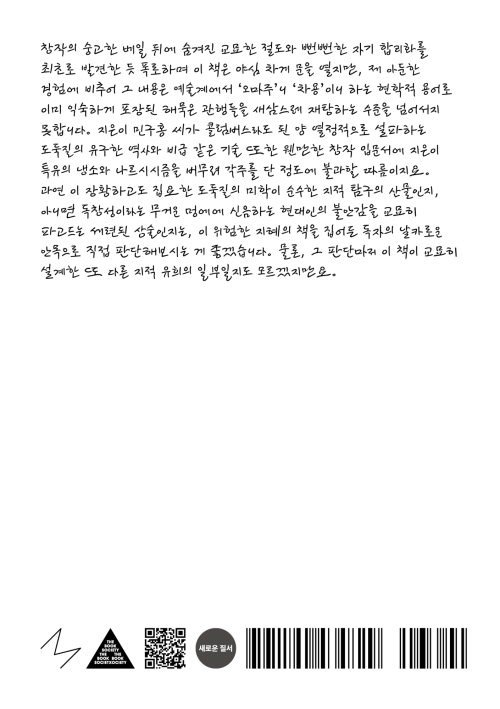 창작의 숭고한 베일 뒤에 숨겨진 교묘한 절도와 뻔뻔한 자기 합리화를
최초로 발견한 듯 폭로하며 이 책은 야심 차게 문을 열지만, 제 아둔한
경험에 비추어 그 내용은 예술계에서 ‘오마주’니 ‘차용’이니 하는 현학적 용어로
이미 익숙하게 포장된 해묵은 관행들을 새삼스레 재탕하는 수준을 넘어서지
못합니다. 지은이 민구홍 씨가 콜럼버스라도 된 양 열정적으로 설파하는
도둑질의 유구한 역사와 비급 같은 기술 또한 웬만한 창작 입문서에 지은이
특유의 냉소와 나르시시즘을 버무려 각주를 단 정도에 불과할 따름이지요.
과연 이 장황하고도 집요한 도둑질의 미학이 순수한 지적 탐구의 산물인지,
아니면 독창성이라는 무거운 멍에에 신음하는 현대인의 불안감을 교묘히
파고드는 세련된 상술인지는, 이 위험한 지혜의 책을 집어든 독자의 날카로운
안목으로 직접 판단해보시는 게 좋겠습니다. 물론, 그 판단마저 이 책이 교묘히
설계한 또 다른 지적 유희의 일부일지도 모르겠지만요.
THE
BOOK
SOCIETY
THE THE
BOOK BOOK
SOCIETYSOCIETY
새로운 질서